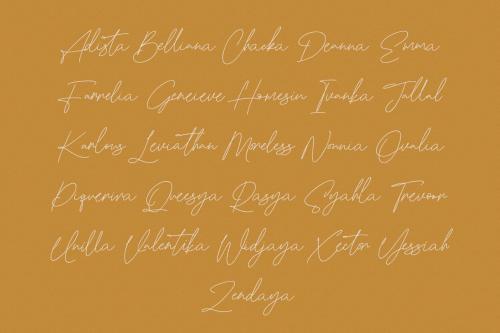 Adista Belliana Chacka Deanna Emma
Farrelia Genieve Homesin Ivanka Jallal
Karlous Leviathan Moreless Nonnia Ovalia
Piquenira Queesya Rasya Syahla Trevoor
Unilla Valentika Widjaya Xector Yessiah
Zendaya